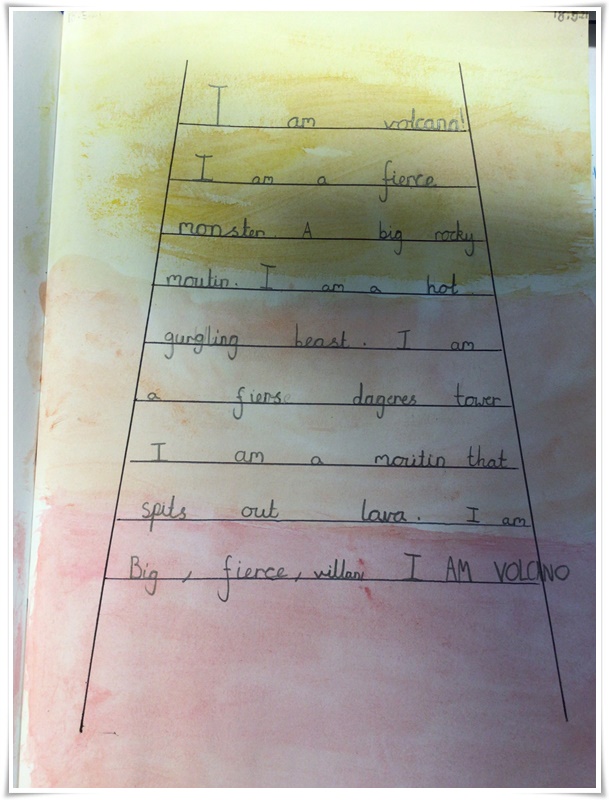 I am volcann!
I am a fierce
monster. A big rocky
moutin. I am a hot
gurgling beast. I am
a fiers dageres tower
I am a moutin that
spits out lava. I am
Big, fierce, villan I AM VOLCANO